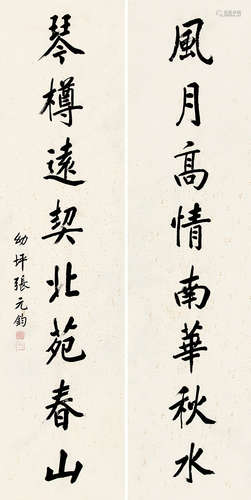 風月高情南華秋水
琴樽遠契北苑春山
幼坪張元鈞